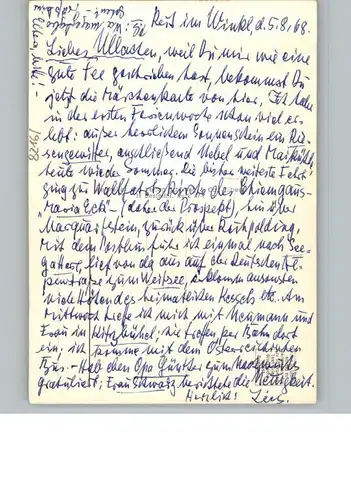 Reit im Winkl, d. 5.8.68.
Liebes Ullalein, weil Du mir wie eine
gute Fee geschrieben hast, bekommst Du
jetzt die Märchenkarte von hier. Ich habe
in der ersten Ferienwoche schon viel er-
lebt: außer herrlichem Sonnenschein ein Rie-
sengewitter, anschließend Nebel und
heute wieder Sonne. Die bisher weiteste Fahrt
ging zur Wallfahrtskirche des Chiemgaus
"Maria Eck" (daher der Prospekt), hin über
Marquartstein, zurück über Ruhpolding.
Mit dem Postbus fuhr ich einmal nach See-
gatterl, lief von da aus auf der Deutschen Al-
penstraße zum Weitsee, erklomm ansonsten
viele Höhen des heimatlichen etc. Am
Mittwoch treffe ich mich mit Neumann und
Frau in Kitzbühel; sie treffen per Bahn dort
ein; ich komme mit dem Österreichischen
Bus. Hab eben Opa Günther zum
gratuliert; Frau Schwarz berichtete die Neuigkeit.
Herzlichst